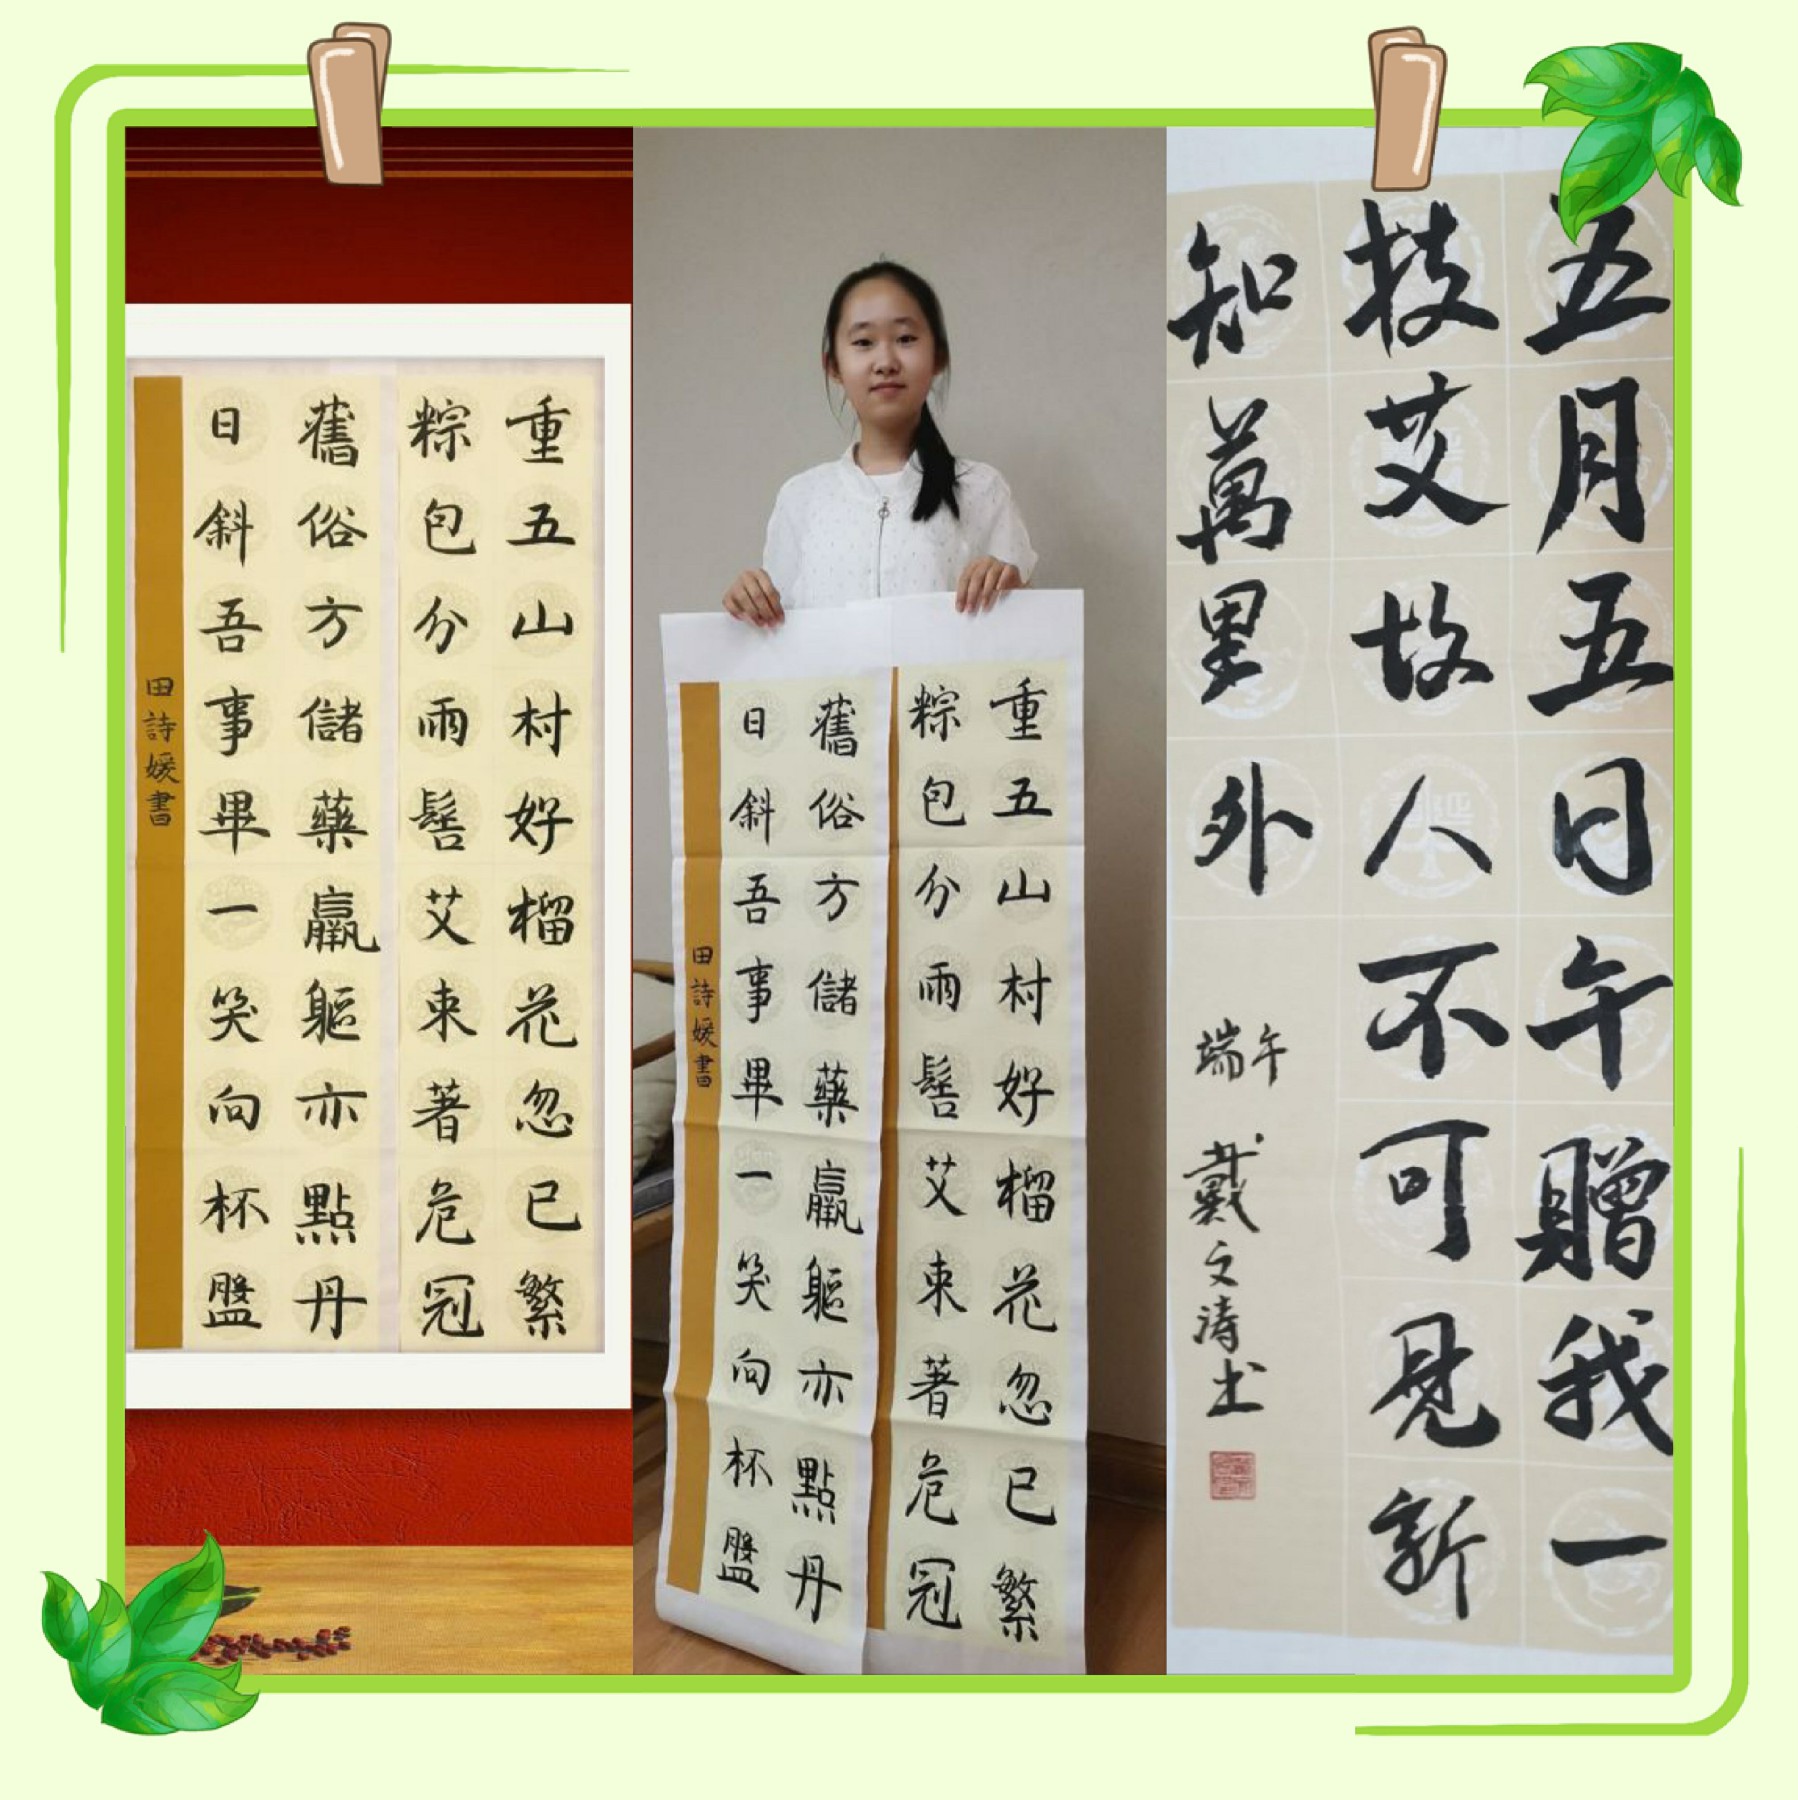 重五山村好榴花忽已繁
粽包分兩髻艾束著危冠
舊俗方儲藥羸軀亦點丹
日斜吾事畢一笑向杯盤
田詩媛書
重五山村好榴花忽已繁
粽包分兩髻艾束著危冠
舊俗方儲藥羸軀亦點丹
日斜吾事畢一笑向杯盤
田詩媛書
五月五日午贈我一
枝艾故人不可見新
知萬里外
端午
戴文涛书